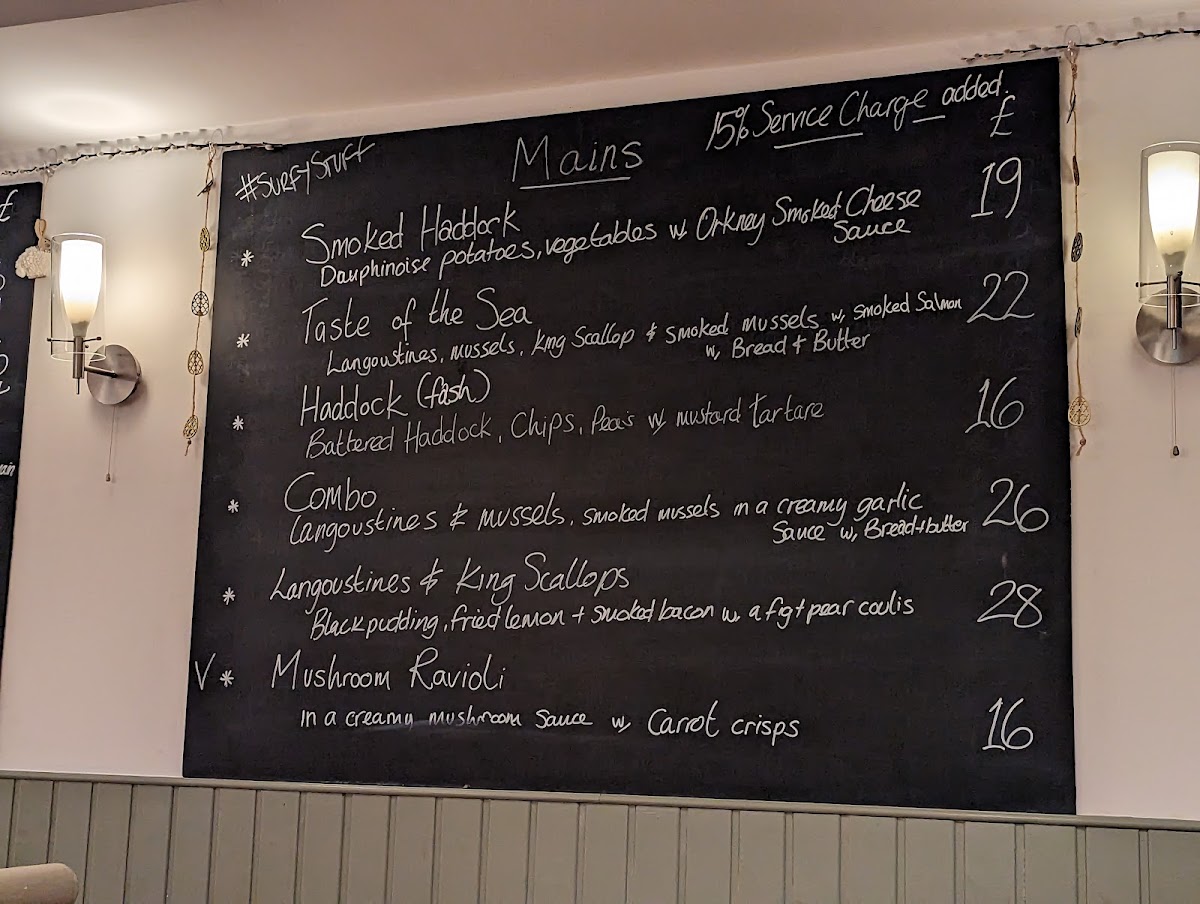 15% Service Charge added.
#SURFYSTUFF
Mains
£
* Smoked Haddock 19
Dauphinoise potatoes, vegetables w, Orkney Smoked Cheese
Sauce
* Taste of the Sea 22
Langoustines, mussels, King Scallop & smoked mussels w, smoked Salmon
w, Bread & Butter
* Haddock (fash) 16
Battered Haddock, Chips, Peas w, mustard tartare
* Combo 26
Langoustines & mussels, smoked mussels in a creamy garlic
Sauce w, Bread + butter
* Langoustines & King Scallops 28
Black pudding, fried lemon + smoked bacon w, a fig + pear coulis
V * Mushroom Ravioli
in a creamy mushroom sauce w, Carrot crisps 16
£